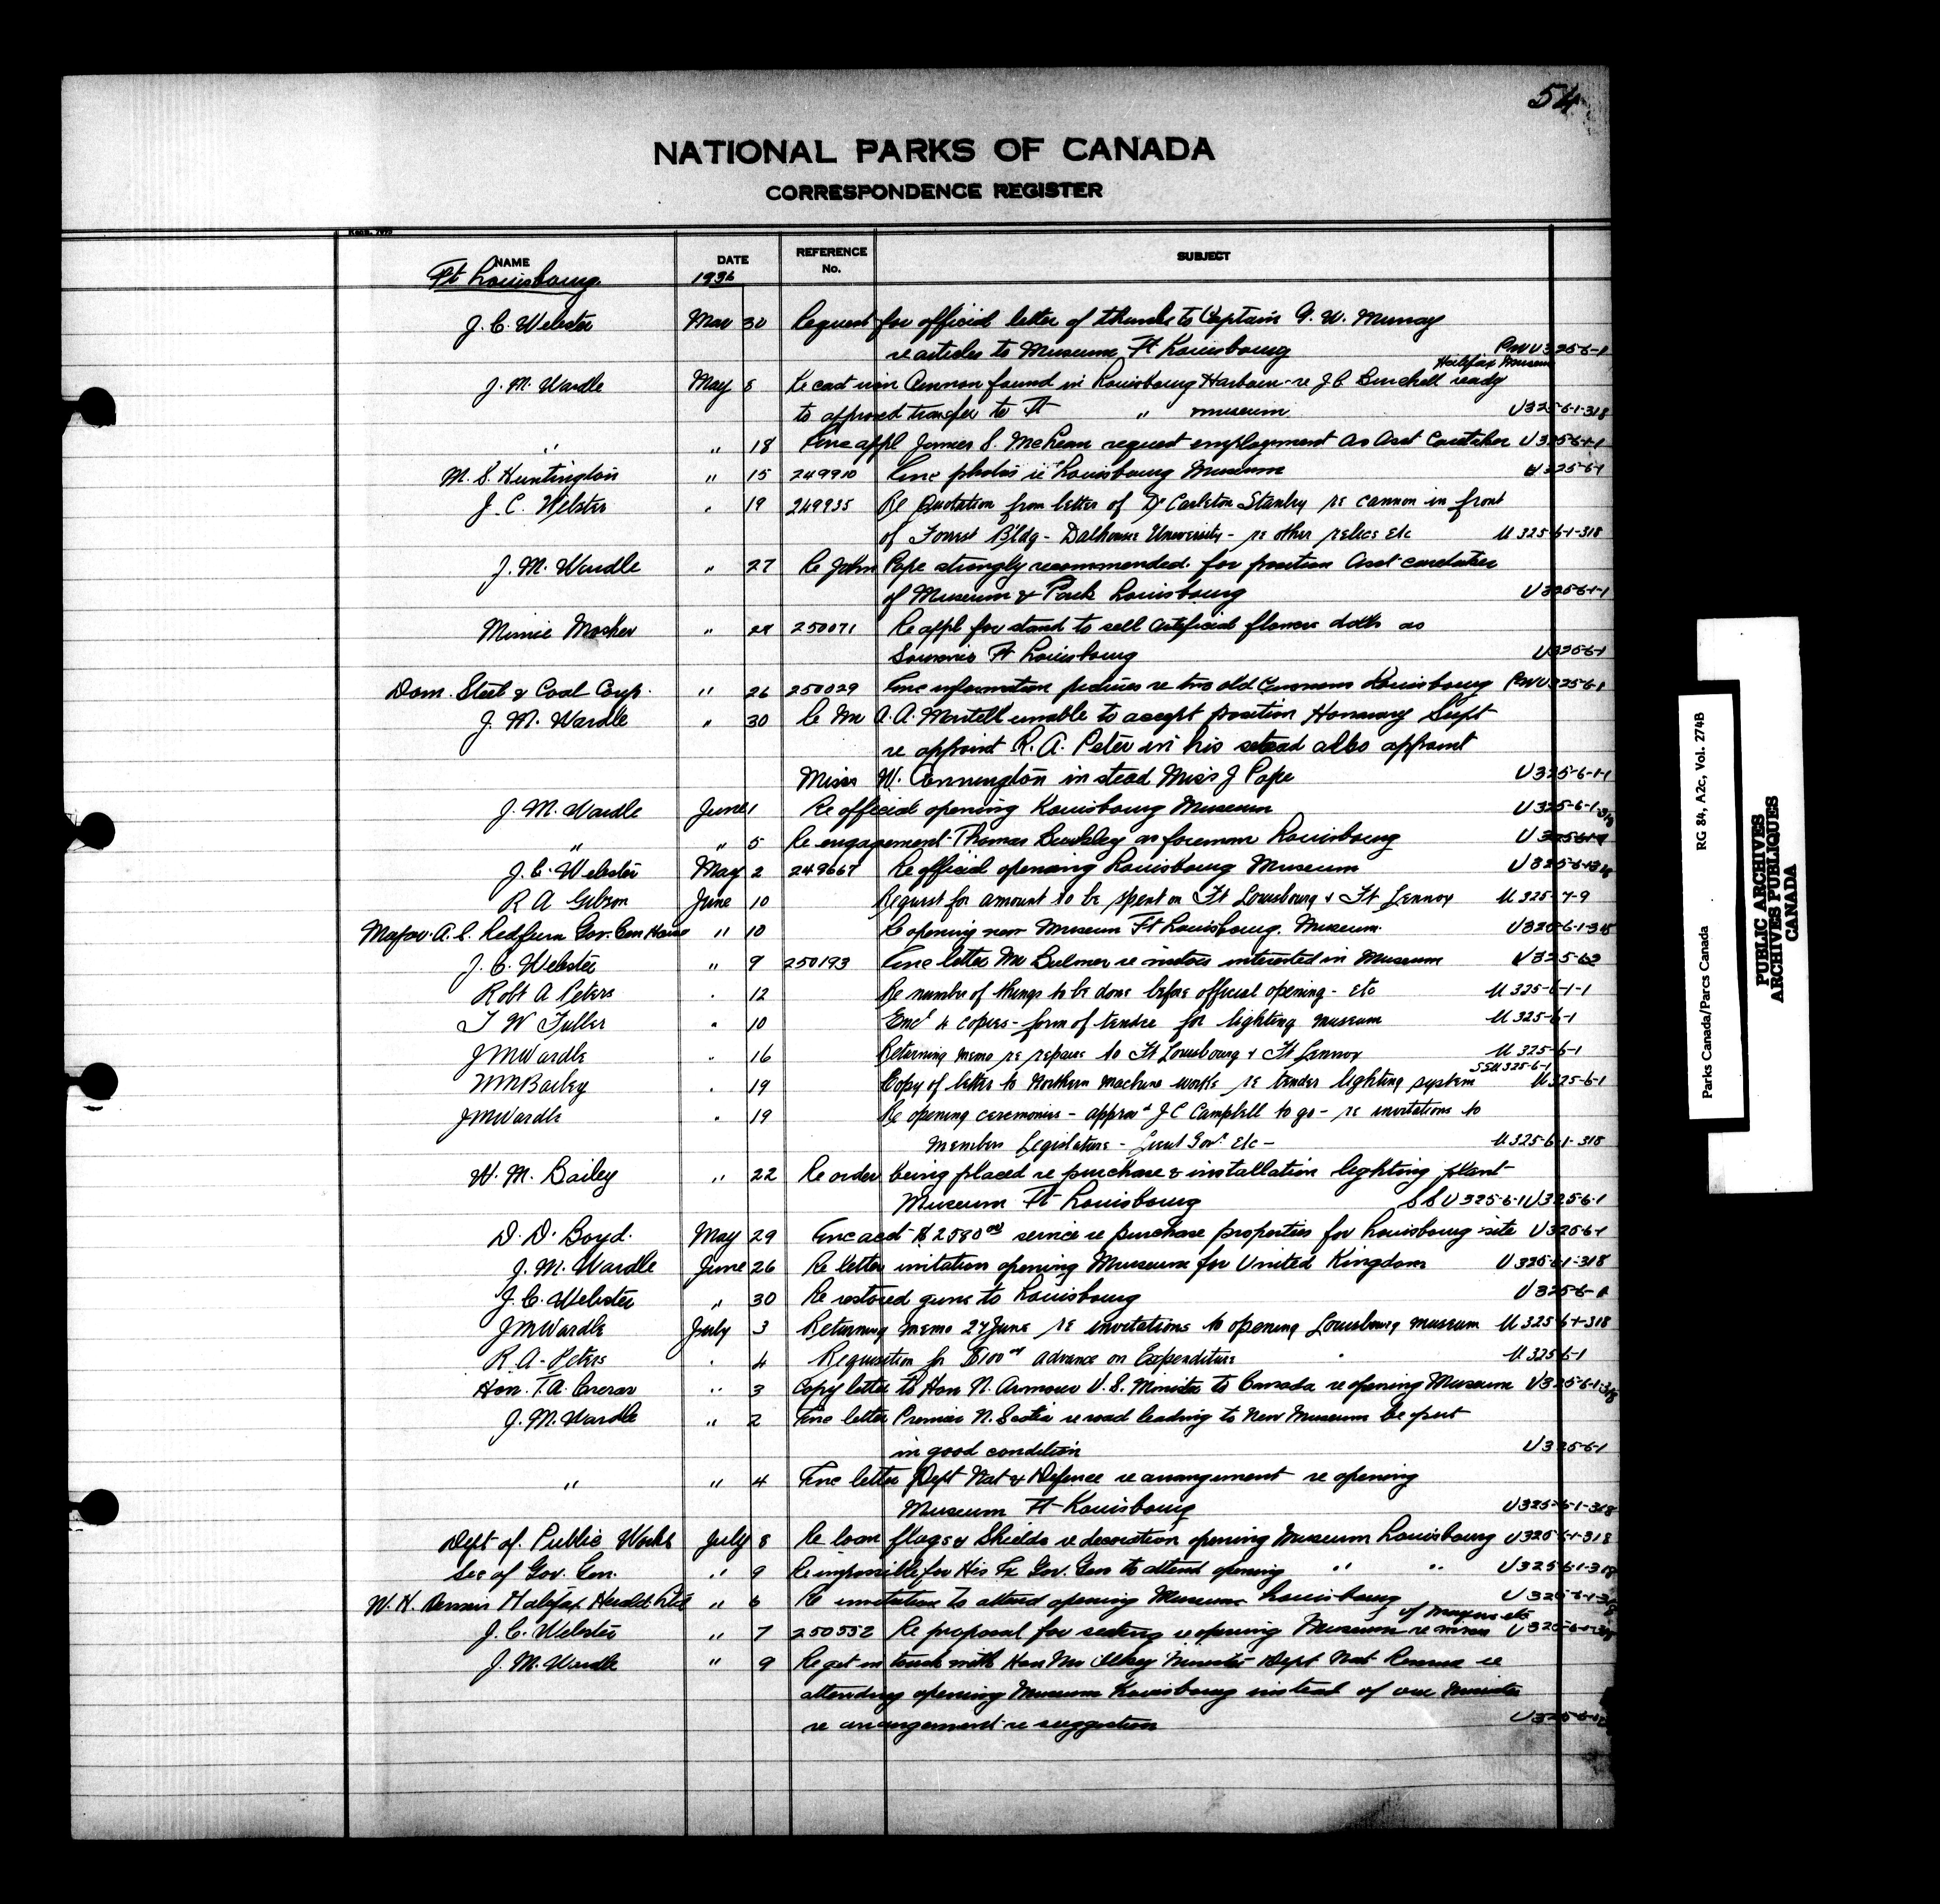 54
NATIONAL PARKS OF CANADA
CORRESPONDENCE REGISTER
NAME DATE REFERENCE No. SUBJECT
Ft Louisbourg 1936
J. C. Webster Mar 30 Request for official letter of thanks to Captain G. W. Murray
re articles to Museum Ft Louisbourg PWU325-6-1
Halifax Museum
J. M. Wardle May 8 Re cast iron Cannon found in Louisbourg Harbour re J C Burchell ready
to approved transfer to Ft " museum U325-6-1-318
" " 18 Enc appl James S. McLean request employment as Asst Caretaker U325-6-1-1
M. S. Huntington " 15 249910 Enc photos re Louisbourg Museum U325-6-1
J. C. Webster " 19 249935 Re Quotation from letter of Dr Carleton Stanley re cannon in front
of Forrest Bldg - Dalhousie University - re other relics etc U325-6-1-318
J. M. Wardle " 27 Re John Pope strongly recommended for position Asst caretaker
of Museum & Park Louisbourg U325-6-1-1
Minnie Mosher " 29 250071 Re appl for stand to sell artificial flowers dolls as
Souvenirs Ft Louisbourg U325-6-1
Dom. Steel & Coal Corp. " 26 250029 Enc information pictures re two old Cannons Louisbourg PWU325-6-1
J. M. Wardle " 30 Re Mr A. A. Martell unable to accept position Honorary Supt
re appoint R. A. Peter in his stead also appoint
Miss W. Connington in stead Miss J Pope U325-6-1-1
J. M. Wardle June 1 Re official opening Louisbourg Museum U325-6-1-318
" " 5 Re engagement Thomas as foreman Louisbourg
J. C. Webster May 2 249667 Re official opening Louisbourg Museum U325-6-1-318
R A Gibson June 10 Request for amount to be spent on Ft Louisbourg & Ft Lennox U325-7-9
Major A. C. Redfern Gov. Gen House " 10 Re opening new Museum Ft Louisbourg. Museum. U325-6-1-318
J. C. Webster " 9 250193 Enc letter Mr Bulmer re visitors interested in Museum
Robt A Peters " 12 Re number of things to be done before official opening - etc U325-6-1-1
T W Fuller " 10 Encl 4 copies - form of tender for lighting museum U325-6-1
J M Wardle " 16 Returning memo re repairs to Ft Louisbourg & Ft Lennox U325-6-1
SSU325-6-1
W M Bailey " 19 Copy of letter to Northern Machine works re tender lighting system U325-6-1
J M Wardle " 19 Re opening ceremonies - approv'd J C Campbell to go - re invitations to
Members Legislature - Lieut Gov. etc - U325-6-1-318
W. M. Bailey " 22 Re order being placed re purchase & installation lighting plant
Museum Ft Louisbourg SSU325-6-1 U325-6-1
D. D. Boyd. May 29 Enc acct $2580 00 service re purchase properties for Louisbourg site U325-6-1
J. M. Wardle June 26 Re letter invitation opening Museum for United Kingdom U325-6-1-318
J. C. Webster " 30 Re restored guns to Louisbourg U325-6-1
J M Wardle July 3 Returning memo 24 June re invitations to opening Louisbourg museum U325-6-1-318
R. A. Peters " 4 Requisition for $100 00 advance on Expenditure " U325-6-1
Hon. T. A. Crerar " 3 Copy letter to Hon N. Armour U.S. Minister to Canada re opening Museum U325-6-1-318
J. M. Wardle " 2 Enc letter Premier N. Scotia re road leading to New Museum be put
in good condition U325-6-1
" " 4 Enc letter Dept Nat & Defence re arrangement re opening
Museum Ft Louisbourg U325-6-1-318
Dept of. Public Works July 8 Re loan flags & Shields re decoration opening Museum Louisbourg U325-6-1-318
Sec of Gov. Gen. " 9 Re impossible for His Ex Gov. Gen to attend opening " " U325-6-1-318
W. H. Dennis Halifax Herald Ltd " 6 Re invitation to attend opening Museum Louisbourg U325-6-1-318
of etc
J. C. Webster " 7 250552 Re proposal for seating re opening Museum re U325-6-1-318
J. M. Wardle " 9 Re get in touch with Hon Mr Ilsley Minister Dept Nat Revenue re
attending opening Museum Louisbourg instead of our Minister
re arrangement re suggestion
Parks Canada/Parcs Canada RG 84, A2c, Vol. 274B
PUBLIC ARCHIVES
ARCHIVES PUBLIQUES
CANADA